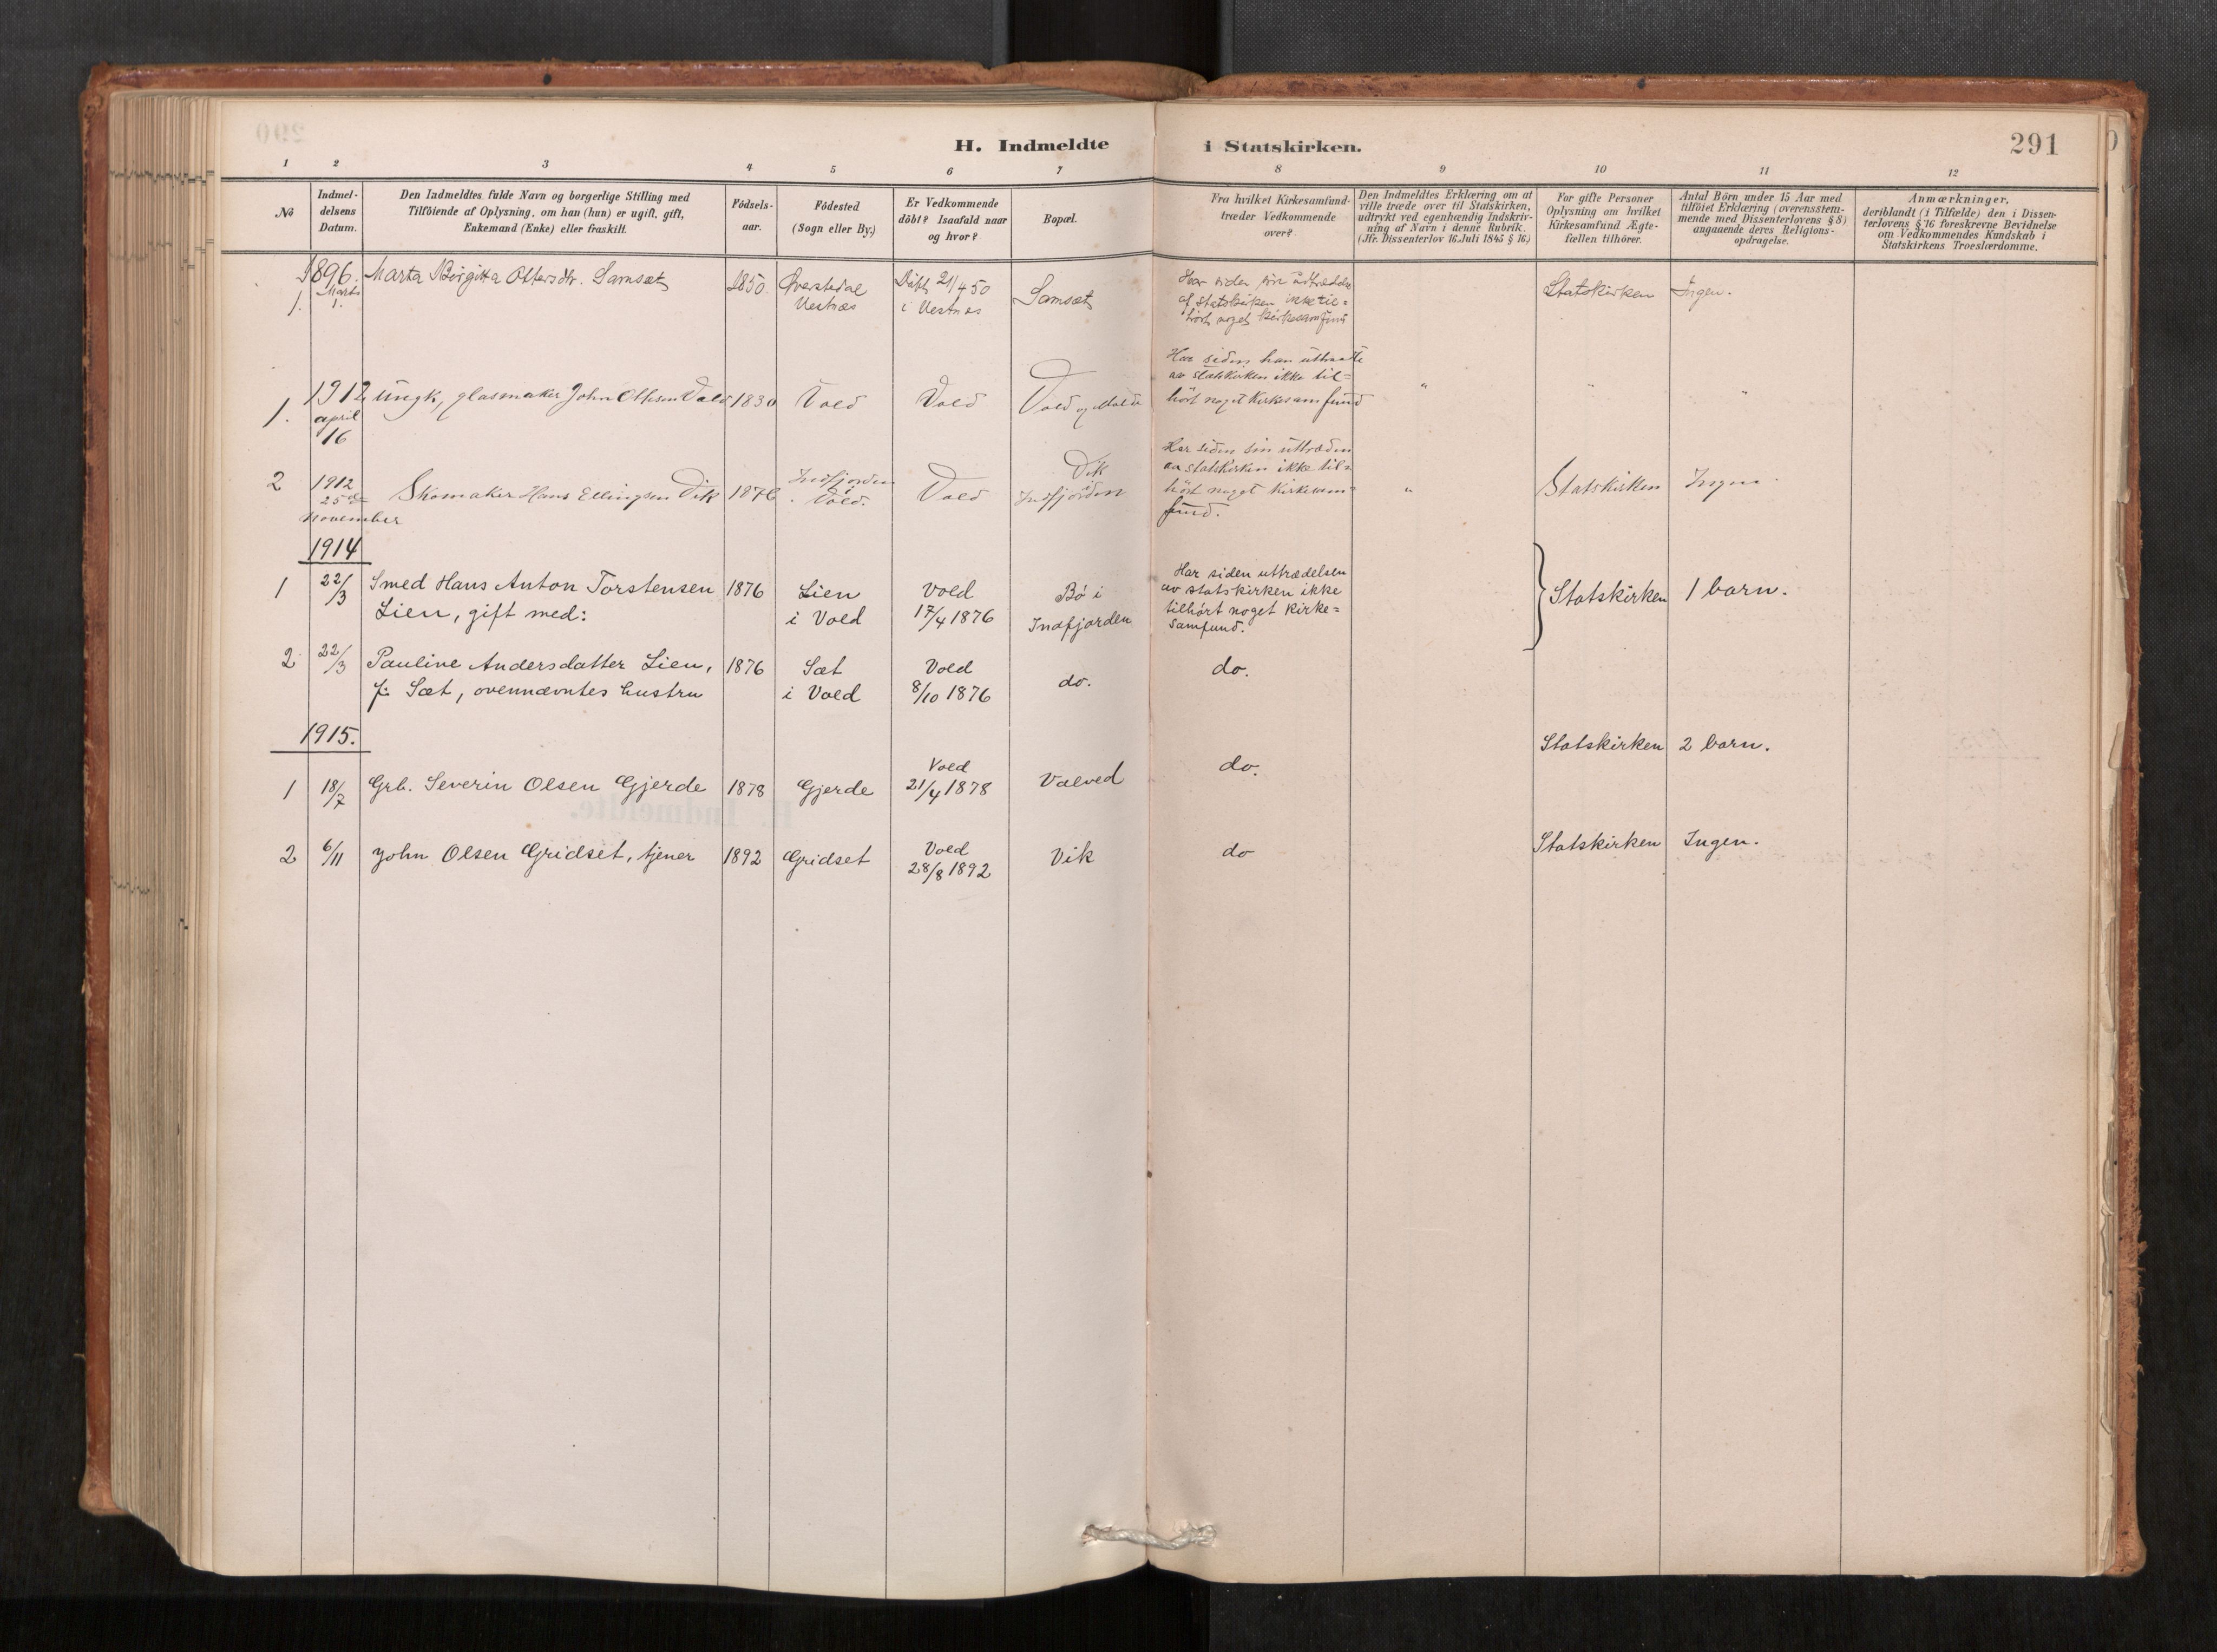 H. Indmeldte i Statskirken.
291
1 2 3 4 5 6 7 8 9 10 11 12
No
Indmel-
delsens
Datum.
Den Indmeldtes fulde Navn og borgerlige Stilling med
Tilföiende af Oplysning, om han (hun) er ugift, gift,
Enkemand (Enke) eller fraskilt.
Födsels-
aar.
Födested
(Sogn eller By.)
Er Vedkommende
döbt? Isaafald naar
og hvor?
Bopæl.
Fra hvilket Kirkesamfund
træder Vedkommende
over?
Den Indmeldtes Erklæring om at
ville træde over til Statskirken,
udtrykt ved egenhændig Indskriv-
ning af Navn i denne Rubrik.
(Jfr. Dissenterlov 16. Juli 1845 § 16.)
For gifte Personer
Oplysning om hvilket
Kirkesamfund Ægte-
fællen tilhörer.
Antal Börn under 15 Aar med
tilföiet Erklæring (overensstem-
mende med Dissenterlovens § 8)
angaaende deres Religions-
opdragelse.
Anmærkninger,
deriblandt (i Tilfælde) den i Dissen-
terlovens § 16 foreskrevne Bevidnelse
om Vedkommendes Kundskab i
Statskirkens Troeslærdomme.
1896.
Marts
1.
1.
Marta Birgitta Ottersdtr. Samsæt
1850.
Vestnæs
Döbt 21/4 50
i Vestnæs
Samsæt
Har siden sin udtrædelse
af Statskirken ikke til=
hört noget Kirkesamfund
Statskirken
Ingen.
1.
1912
april
16
Ungk, glasmaker John Ottesen Vold
1830
Vold
Vold
Vold og Molde
Har siden han uttraadte
av statskirken ikke til=
hört noget Kirkesamfund
"
"
"
2
1912
25de
November
Skomaker Hans Ellingsen Vik
1876
Indfjorden
i Vold.
Vold
Vik
Indfjorden
Har siden sin uttræden
av statskirken ikke til=
hört noget Kirkesam=
fund.
"
Statskirken
Ingen
1914
1
22/3
Smed Hans Anton Torstensen
Lien, gift med:
1876
Lien
i Vold
Vold
17/4 1876
Bö i
Indfjorden
Har siden uttrædelsen
av statskirken ikke
tilhört noget kirke=
samfund.
Statskirken
1 barn.
2
22/3
Pauline Andersdatter Lien,
f: Sæt, ovennævntes hustru
1876
Sæt
i Vold
Vold
8/10 1876
do.
do.
1915.
1
18/7
Grb. Severin Olsen Gjerde
1878
Gjerde
Vold
21/4 1878
Valved
do.
Statskirken
2 barn.
2
6/11
John Olsen Gridset, tjener
1892
Gridset
Vold
28/8 1892
Vik
do
Statskirken
Ingen.